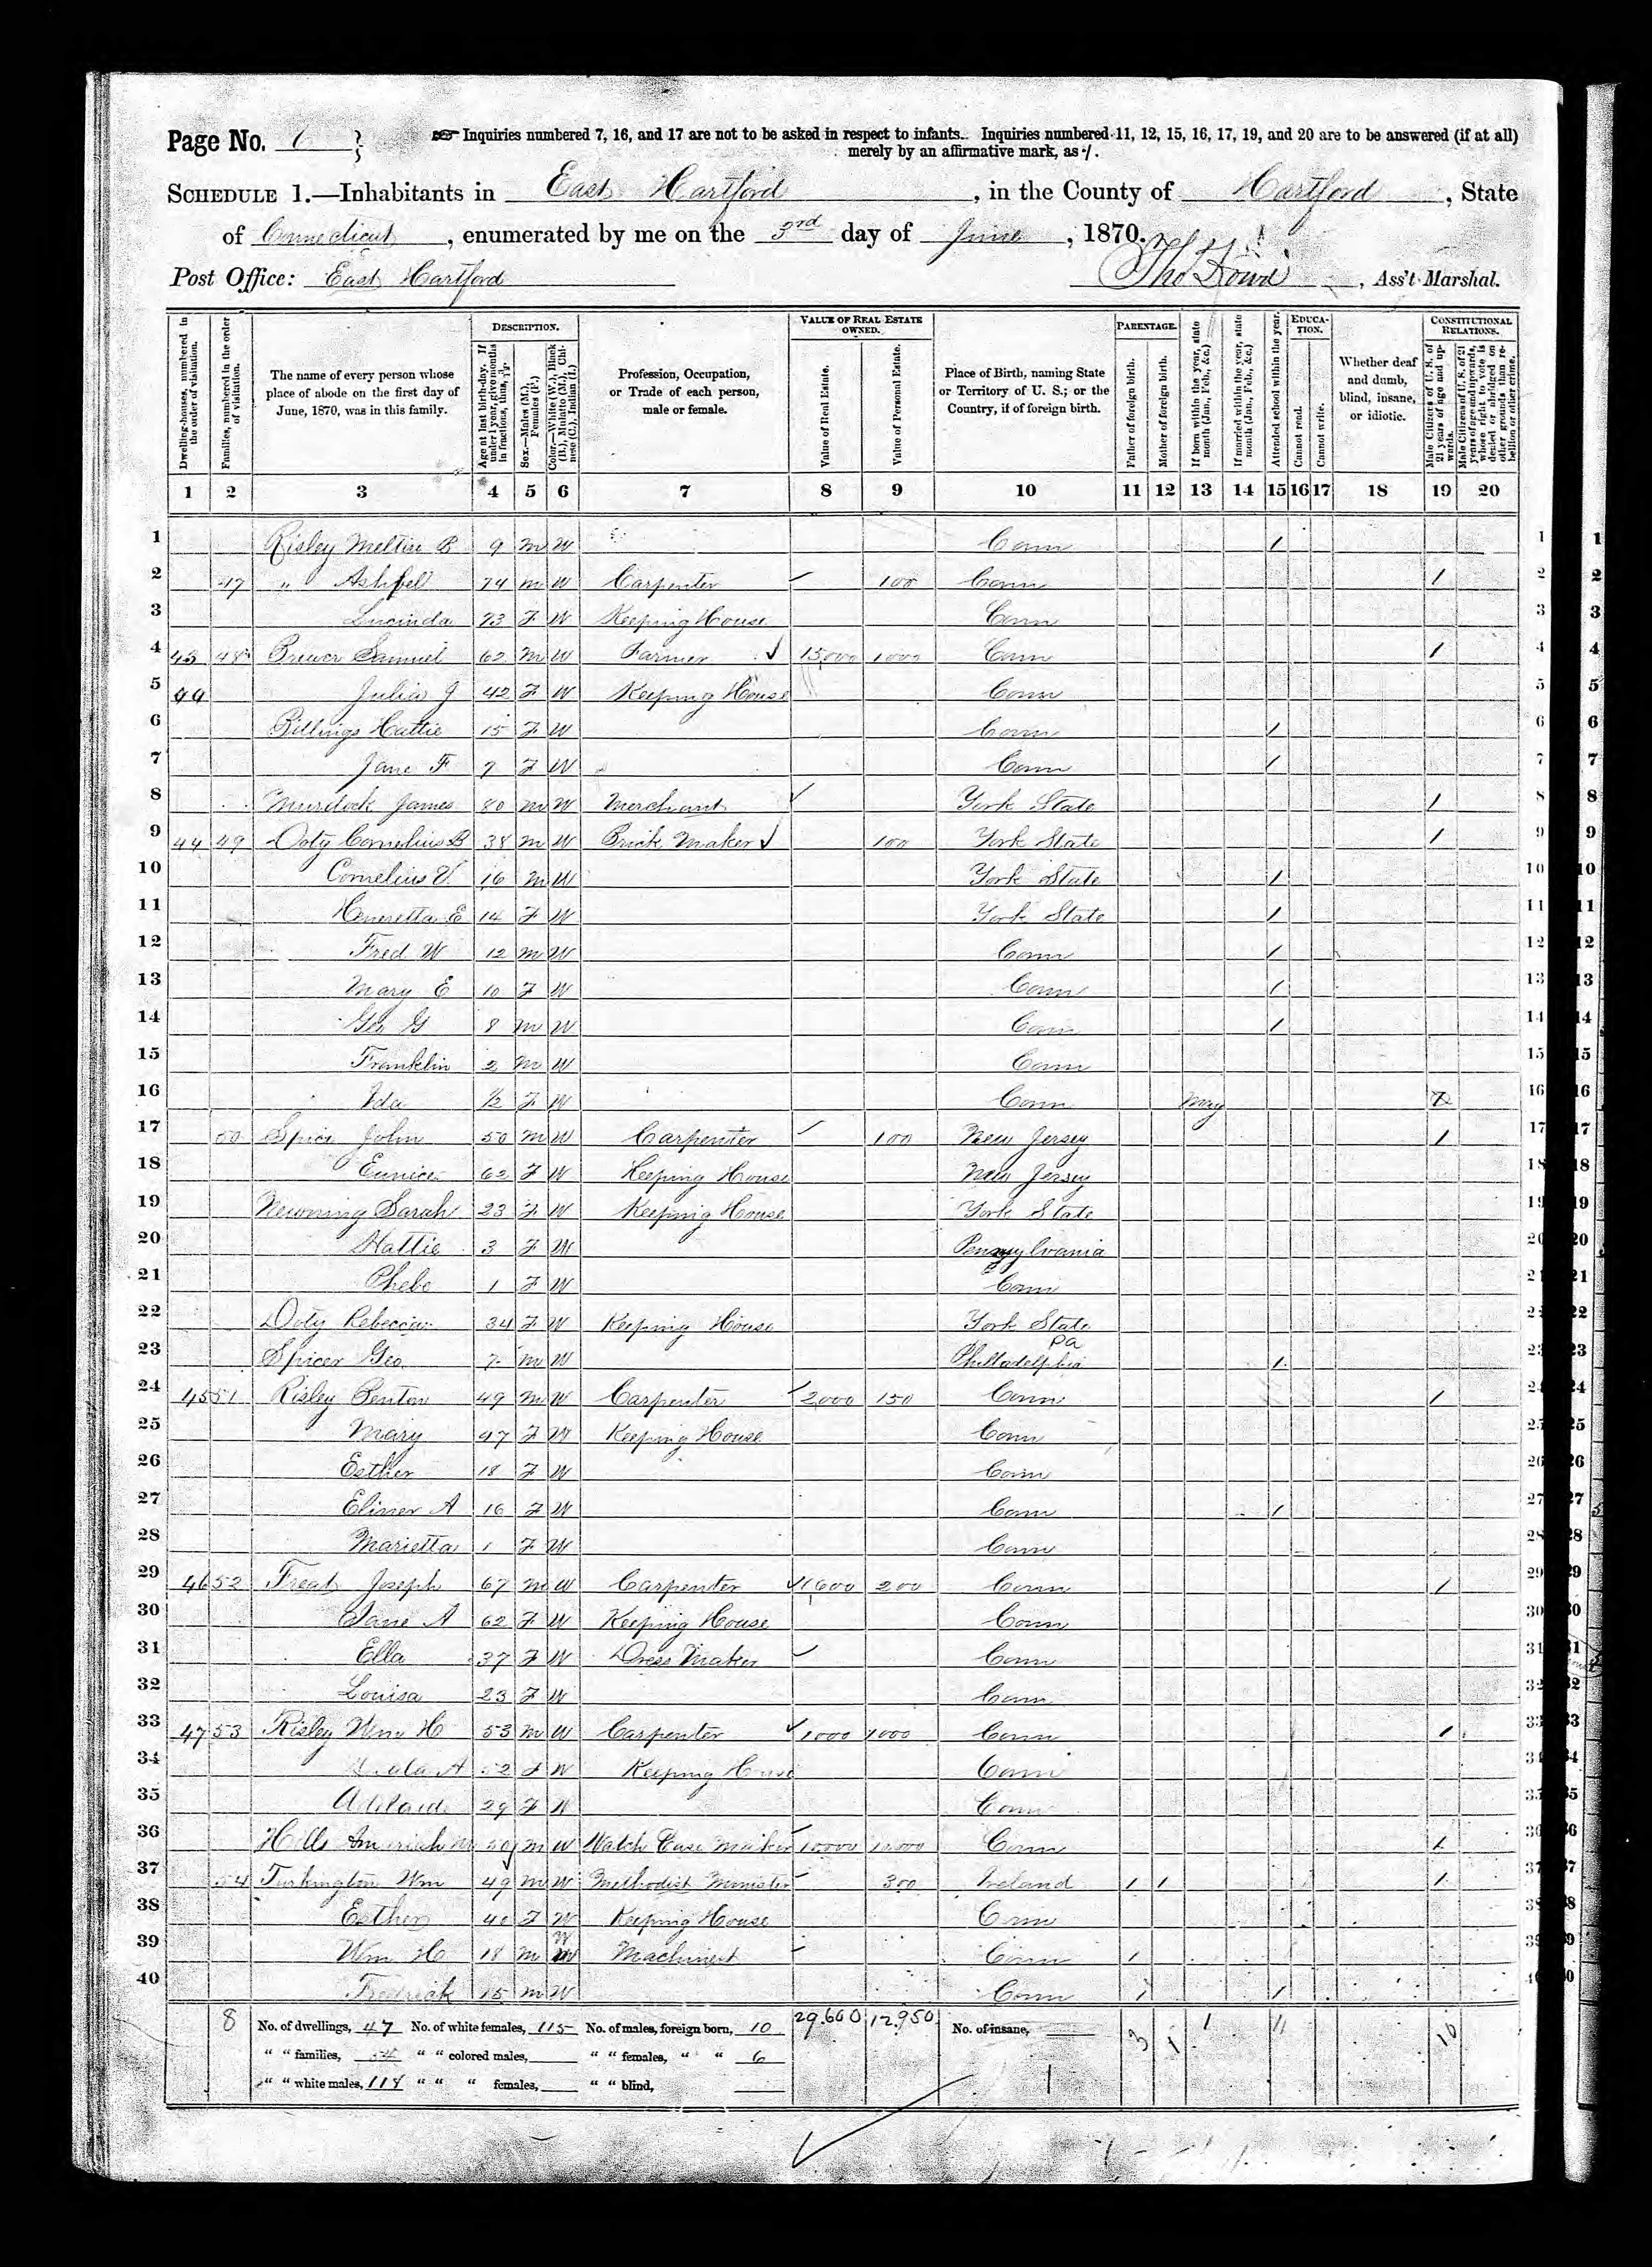 Page No. 6
Inquiries numbered 7, 16, and 17 are not to be asked in respect to infants. Inquiries numbered 11, 12, 15, 16, 17, 19, and 20 are to be answered (if at all)
merely by an affirmative mark, as /.
SCHEDULE 1.—Inhabitants in East Hartford, in the County of Hartford, State
of Connecticut, enumerated by me on the 3rd day of June, 1870.
Post Office: East Hartford , Ass't Marshal.
Dwelling-houses, numbered in the order of visitation.
Families, numbered in the order of visitation.
The name of every person whose place of abode on the first day of June, 1870, was in this family.
DESCRIPTION.
Age at last birth-day. If under 1 year, give months in fractions, thus, 3/12.
Sex.—Males (M.), Females (F.)
Color.—White (W.), Black (B.), Mulatto (M.), Chinese (C.), Indian (I.)
Profession, Occupation, or Trade of each person, male or female.
VALUE OF REAL ESTATE OWNED.
Value of Real Estate.
Value of Personal Estate.
Place of Birth, naming State or Territory of U. S.; or the Country, if of foreign birth.
PARENTAGE.
Father of foreign birth.
Mother of foreign birth.
If born within the year, state month (Jan., Feb., &c.)
If married within the year, state month (Jan., Feb., &c.)
Attended school within the year.
EDUCATION.
Cannot read.
Cannot write.
Whether deaf and dumb, blind, insane, or idiotic.
CONSTITUTIONAL RELATIONS.
Male Citizens of U. S. of 21 years of age and upwards.
Male Citizens of U. S. of 21 years of age and upwards, whose right to vote is denied or abridged on other grounds than rebellion or other crime.
1 2 3 4 5 6 7 8 9 10 11 12 13 14 15 16 17 18 19 20
1 Risley B 9 M W Conn / 1
2 47 " Ashbell 74 M W Carpenter 100 Conn / 2
3 Lucinda 73 F W Keeping House Conn 3
4 43 48 Brewer Samuel 62 M W Farmer 15,000 1000 Conn / 4
5 44 Julia J 42 F W Keeping House Conn 5
6 Billings Hattie 15 F W Conn / 6
7 Jane F 7 F W Conn / 7
8 Murdock James 80 M W Merchant York State / 8
9 44 49 Doty Cornelius B 38 M W Brick Maker 100 York State / 9
10 Cornelius V. 16 M W York State / 10
11 Heneretta E 14 F W York State / 11
12 Fred W 12 M W Conn / 12
13 Mary E 10 F W Conn / 13
14 Geo G 8 M W Conn / 14
15 Franklin 2 M W Conn 15
16 Ida 1/2 F W Conn May 16
17 50 Spicer John 50 M W Carpenter 100 New Jersey / 17
18 Eunice 62 F W Keeping House New Jersey 18
19 Sarah 23 F W Keeping House York State 19
20 Hattie 3 F W Pennsylvania 20
21 Phebe 1 F W Conn 21
22 Doty Rebecca 34 F W Keeping House York State 22
23 Spicer Geo. 7 M W Philladelphia Pa / 23
24 45 51 Risley Benton 49 M W Carpenter 2,000 150 Conn / 24
25 Mary 47 F W Keeping House Conn 25
26 Esther 18 F W Conn 26
27 Elinor A 16 F W Conn / 27
28 Marietta 1 F W Conn 28
29 46 52 Treat Joseph 67 M W Carpenter 1600 200 Conn / 29
30 Jane A 62 F W Keeping House Conn 30
31 Ella 37 F W Dress Maker Conn 31
32 Louisa 23 F W Conn 32
33 47 53 Risley Wm H 53 M W Carpenter 1000 1000 Conn / 33
34 A 52 F W Keeping House Conn 34
35 29 F W Conn 35
36 Hills M W Watch Case Maker 10,000 10,000 Conn / 36
37 54 Turkington Wm 49 M W Methodist Minister 300 Ireland / / / 37
38 Esther F W Keeping House Conn 38
39 Wm H 18 M W Machinest Conn / 39
40 Fredriak 15 M W Conn / / 40
8 No. of dwellings, 47 No. of white females, 115 No. of males, foreign born, 10 29.600 12.950 No. of insane, 3 1 1 11 10
" " families, 54 " " colored males, " " females, " " 6
" " white males, 118 " " " females, " " blind,